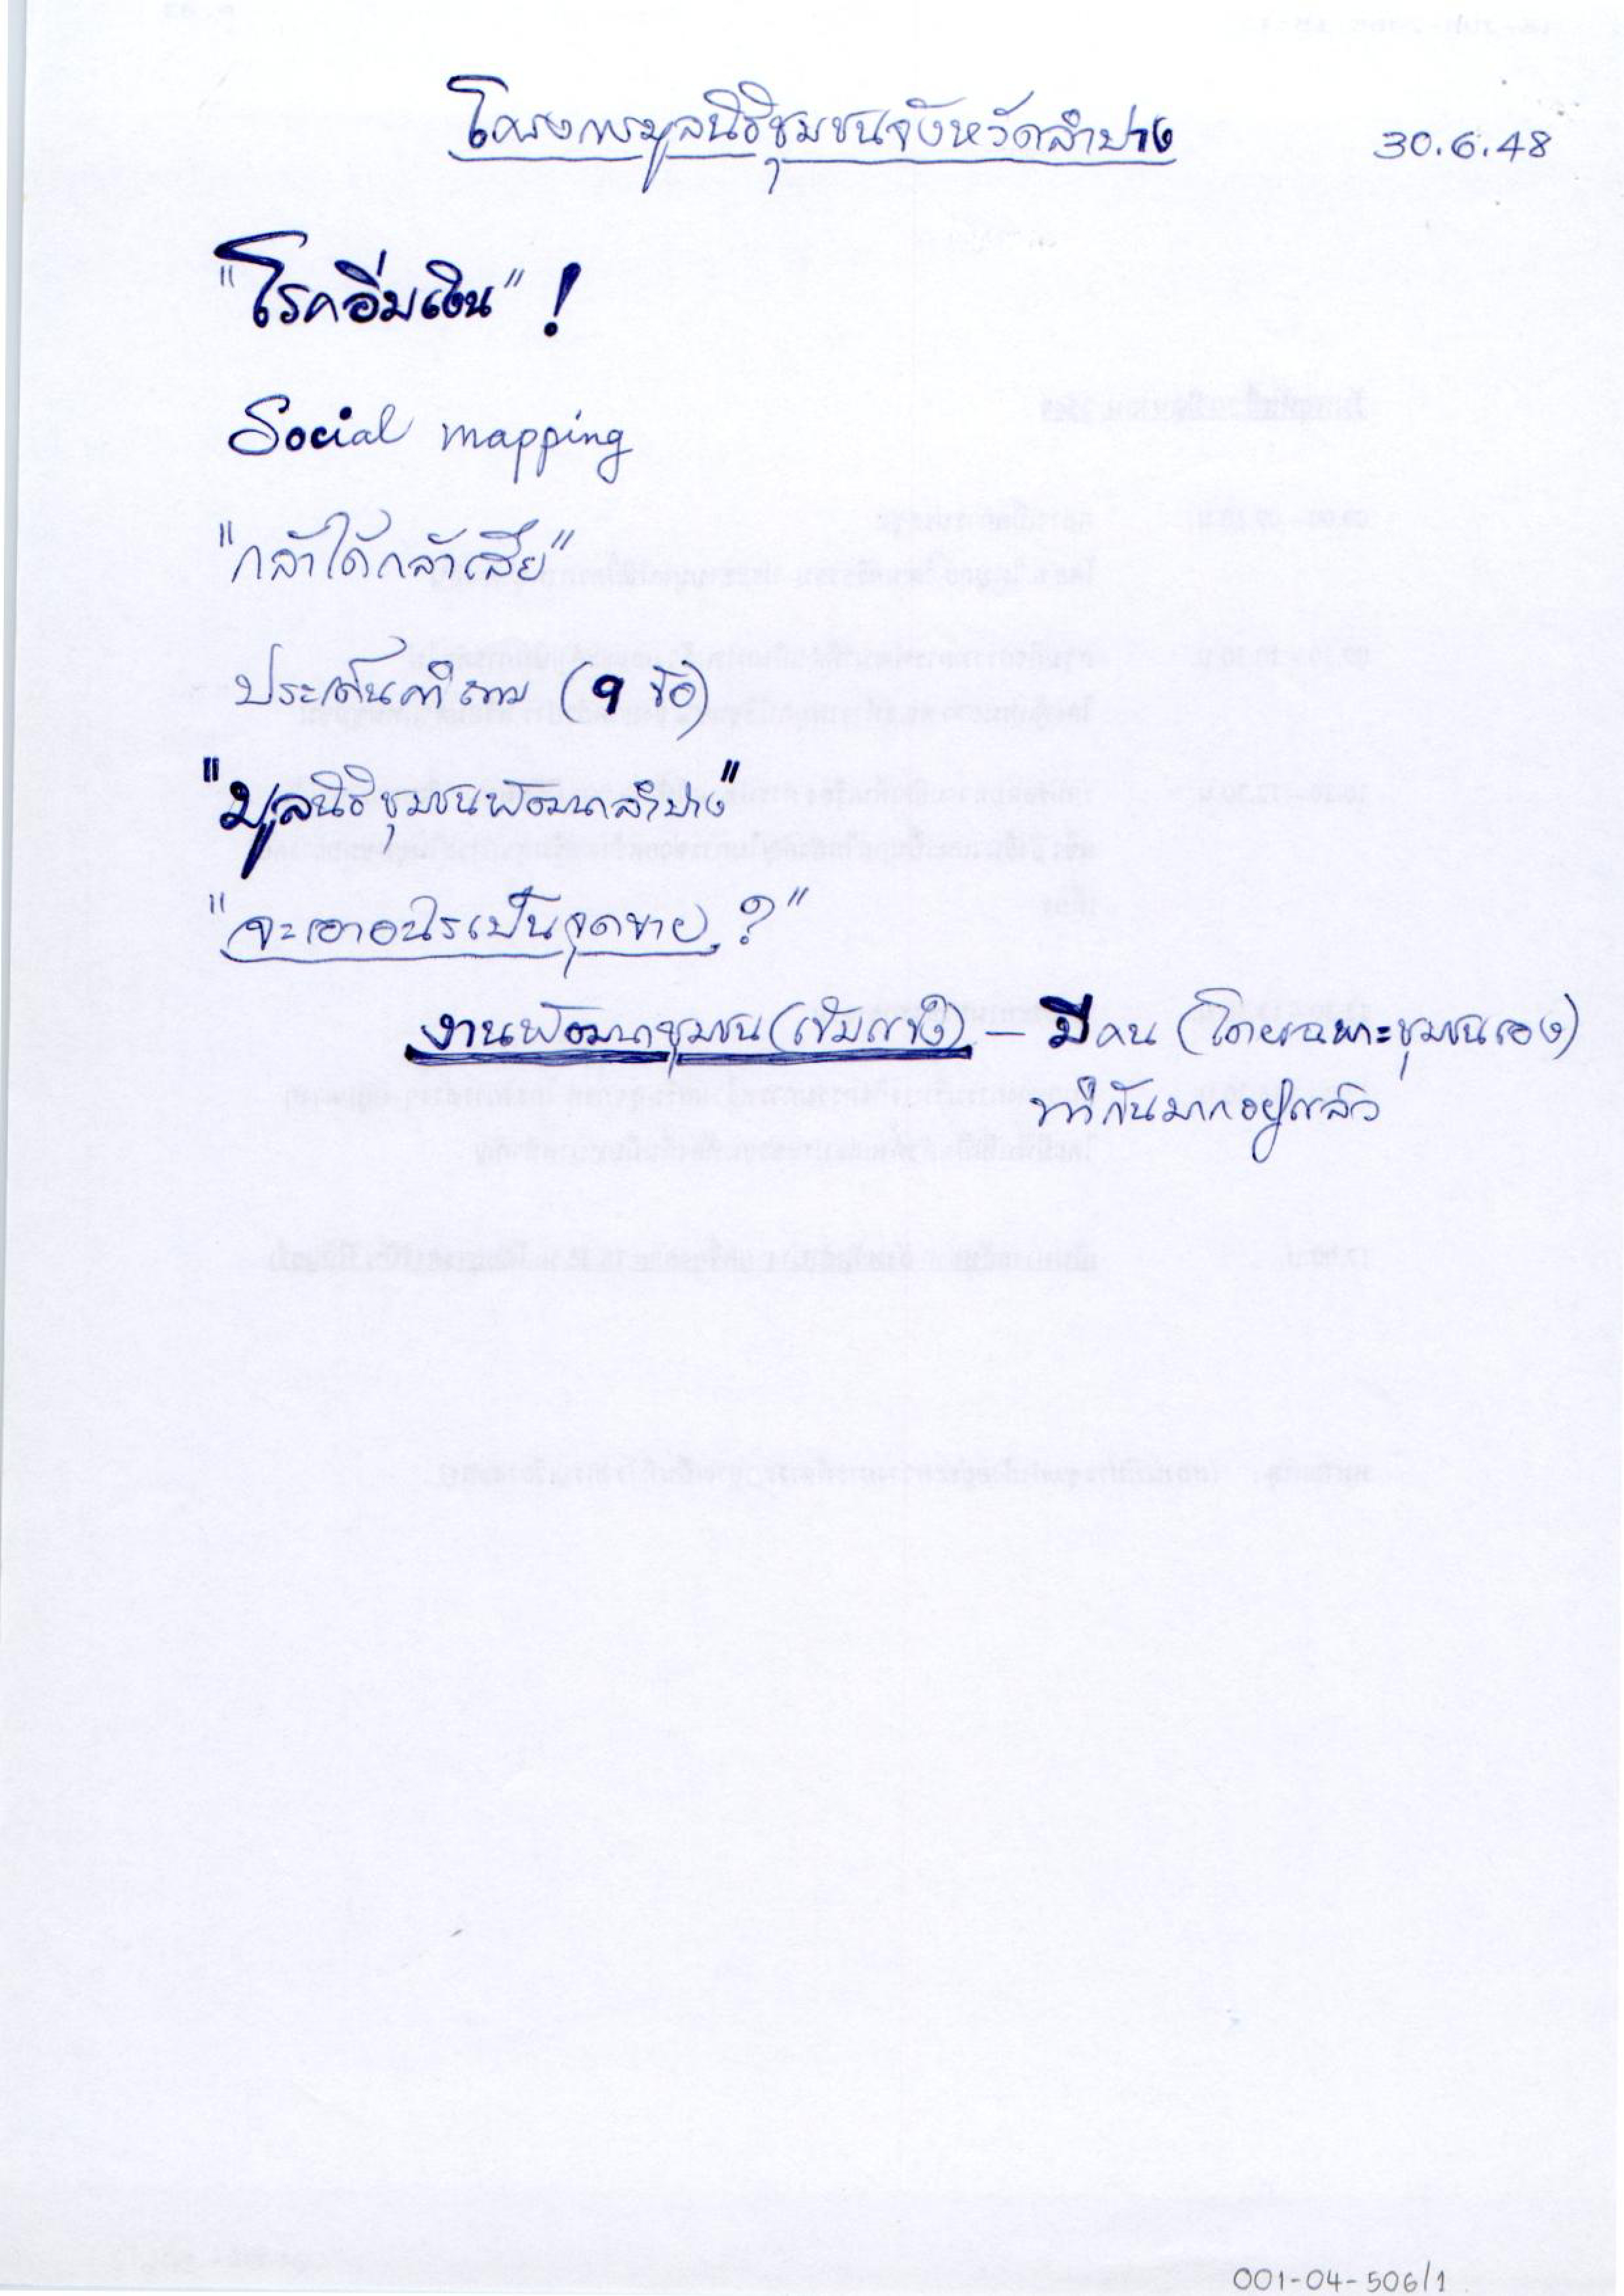 โครงการมูลนิธิชุมชนจังหวัดลำปาง 30.6.48
"โรคอิ่มเงิน" !
Social mapping
"กล้าได้กล้าเสีย"
ประเด็นคำถาม (9 ข้อ)
"มูลนิธิชุมชนพัฒนาลำปาง"
"จะเอาอะไรเป็นจุดขาย ?"
งานพัฒนาชุมชน (เข้มแข็ง) – มีคน (โดยเฉพาะชุมชนเอง)
ทำกันมากอยู่แล้ว
001-04-506/1